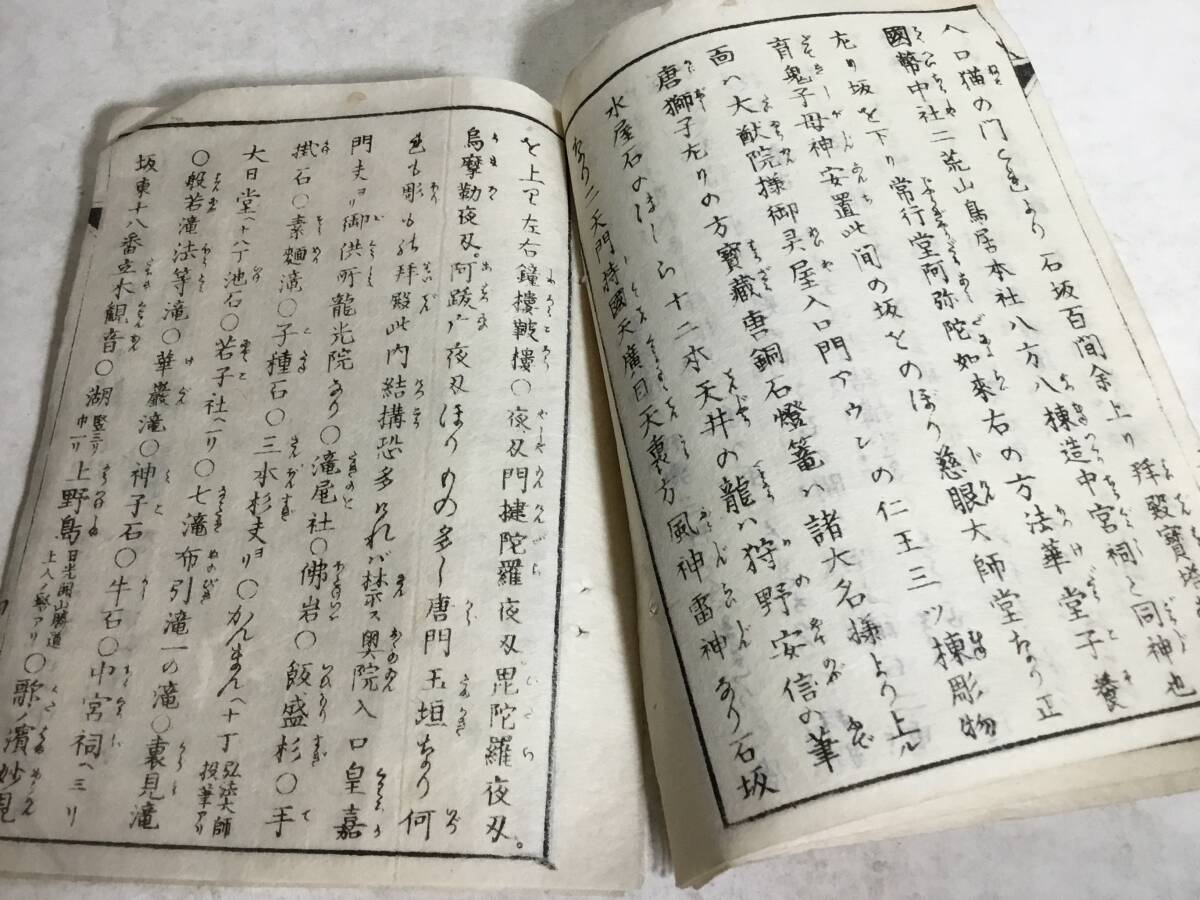 入口猫の門もあり石坂百間余上り拝殿寳塔
國幣中社二荒山鳥居本社八方八棟造中宮祠と同神也
左り坂を下り常行堂阿弥陀如来右の方法華堂子養
育鬼子母神安置此間の坂をのぼり慈眼大師堂あり正
面ハ大猷院様御灵屋入口門アウンの仁王三ツ棟彫物
唐獅子左りの方寳蔵唐銅石燈篭ハ諸大名様より上ル
水屋石のはしら十二本天井の龍ハ狩野安信の筆
なり二天門持國天廣目天裏方風神雷神あり石坂
を上リ左右鐘樓鼓樓〇夜叉門揵陀羅夜叉毘陀羅夜叉。
烏摩勒夜叉。阿跋广夜叉ほりもの多し唐門玉垣あり何
も彫も拜殿此内結構恐多けれバ禁ス奥院入口皇嘉
門夫ヨリ御供所龍光院あり〇滝尾社〇佛岩〇飯盛杉〇手
掛石〇素麺滝〇子種石〇三本杉夫ヨリ〇かんまんへ十丁弘法大師投筆アリ
大日堂へ十八丁池石〇若子社へ一リ〇七滝布引滝一の滝〇裏見滝
〇般若滝法等滝〇華嚴滝〇神子石〇牛石〇中宮祠へ三リ
坂東十八番立木観音〇湖竪三リ巾一リ上野島日光開山勝道上人ノ墓アリ〇歌ノ濱妙見